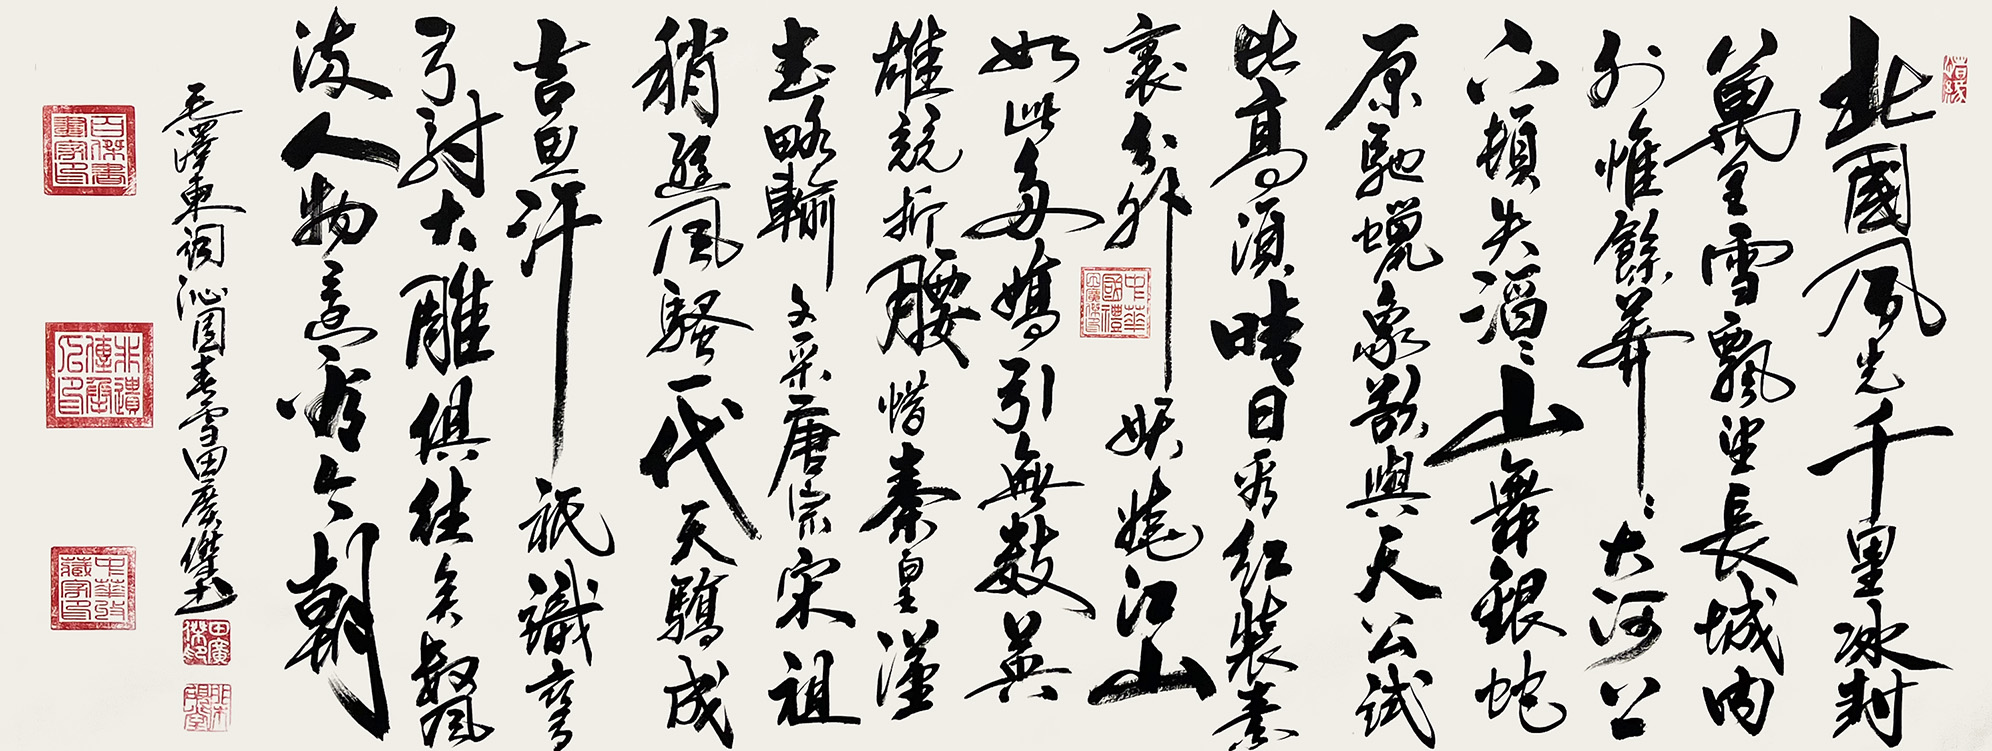 北國風光千里冰封
萬里雪飄望長城内
外惟餘莽〻大河上
下頓失滔〻山舞銀蛇
原馳蠟象欲與天公試
比高須晴日看紅裝素
裹分外妖嬈江山
如此多嬌引無數英
雄競折腰惜秦皇漢
武略輸文采唐宗宋祖
稍遜風騷一代天驕成
吉思汗祇識彎
弓射大雕俱往矣數風
流人物還看今朝
毛澤東詞沁園春雪田廣傑書
田廣傑印
百傑書畫家印
非遺傳承人印
中華收藏家印